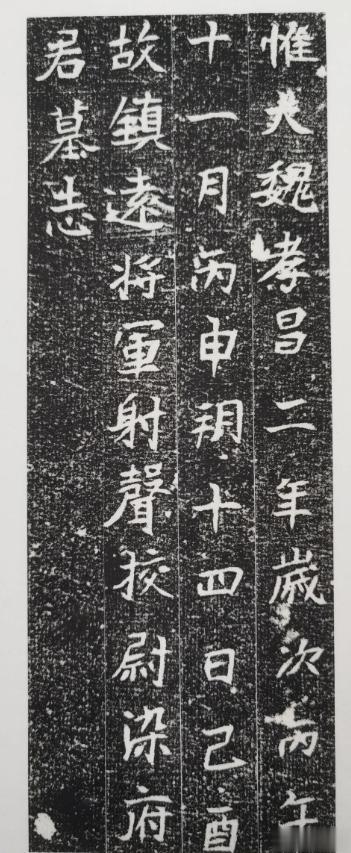 惟大魏孝昌二年歲次丙午
十一月丙申朔十四日己酉
故鎮遠將軍射聲挍尉染府
君墓志